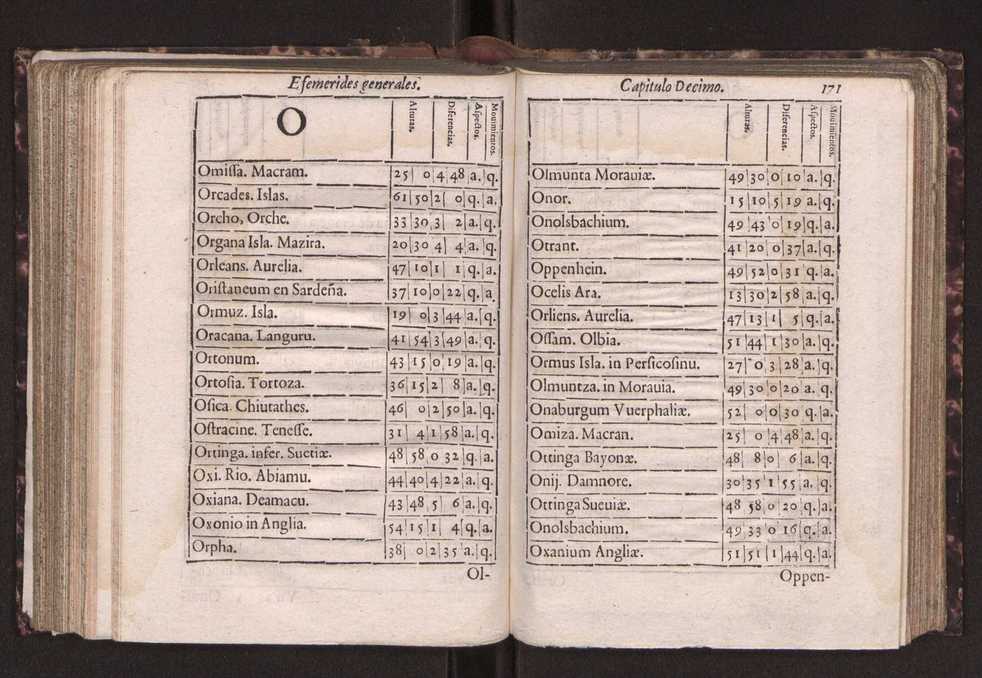 Efemerides generales.
O
Alturas. Diferencias. Aspectos. Mouimientos.
Omissa. Macram. 25 0 4 48 a. q.
Orcades. Islas. 61 50 2 0 q. a.
Orcho, Orche. 33 30 3 2 a. q.
Organa Isla. Mazira. 20 30 4 4 a. q.
Orleans. Aurelia. 47 10 1 1 q. a.
Oristaneum en Sardeña. 37 10 0 22 q. a
Ormuz. Isla. 19 0 3 44 a. q.
Oracana. Languru. 41 54 3 49 a. q.
Ortonum. 43 15 0 19 a. q.
Ortosia. Tortoza. 36 15 2 8 a. q.
Osica. Chiutathes. 46 0 2 50 a. q.
Ostracine. Tenesse. 31 4 1 58 a. q.
Ortinga. infer. Suctiæ. 48 58 0 32 q. a.
Oxi. Rio. Abiamu. 44 40 4 22 a. q.
Oxiana. Deamacu. 43 48 5 6 a. q.
Oxonio in Anglia. 54 15 1 4 q. a.
Orpha. 38 0 2 35 a. q.
Ol-
Capitulo Decimo. 171
Alturas. Diferencias. Aspectos. Mouimientos.
Olmunta Morauiæ. 49 30 0 10 a. q.
Onor. 15 10 5 19 a. q.
Onolsbachium. 49 43 0 19 q. a.
Otrant. 41 20 0 37 a. q.
Oppenhein. 49 52 0 31 q. a.
Ocelis Ara. 13 30 2 58 a. q.
Orliens. Aurelia. 47 13 1 5 q. a.
Ossam. Olbia. 51 44 1 30 a. q.
Ormus Isla. in Persicosinu. 27 0 3 28 a. q.
Olmuntza. in Morauia. 49 30 0 20 a. q.
Onaburgum Vuerphaliæ. 52 0 0 30 q. a.
Omiza. Macran. 25 0 4 48 a. q.
Ottinga Bayonæ. 48 8 0 6 a. q.
Onij. Damnore. 30 35 1 55 a. q.
Ottinga Sueuiæ. 48 58 0 20 q. a.
Onolsbachium. 49 33 0 16 q. a.
Oxanium Angliæ. 51 51 1 44 q. a.
Oppen-